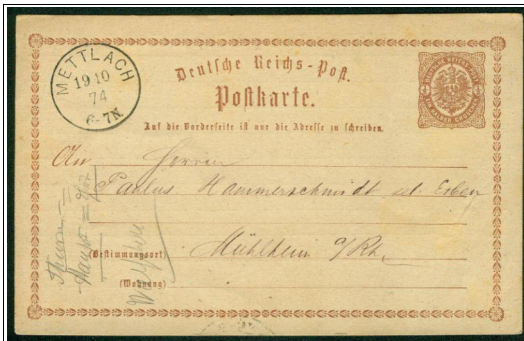 METTLACH
19 10
74
6-7N.
Deutsche Reichs-Post.
Postkarte.
Auf die Vorderseite ist nur die Adresse zu schreiben.
An Herrn
Paulus Hammerschmidt sel. Erben
Bestimmungsort: Mühlheim a/Rh.
(Wohnung)